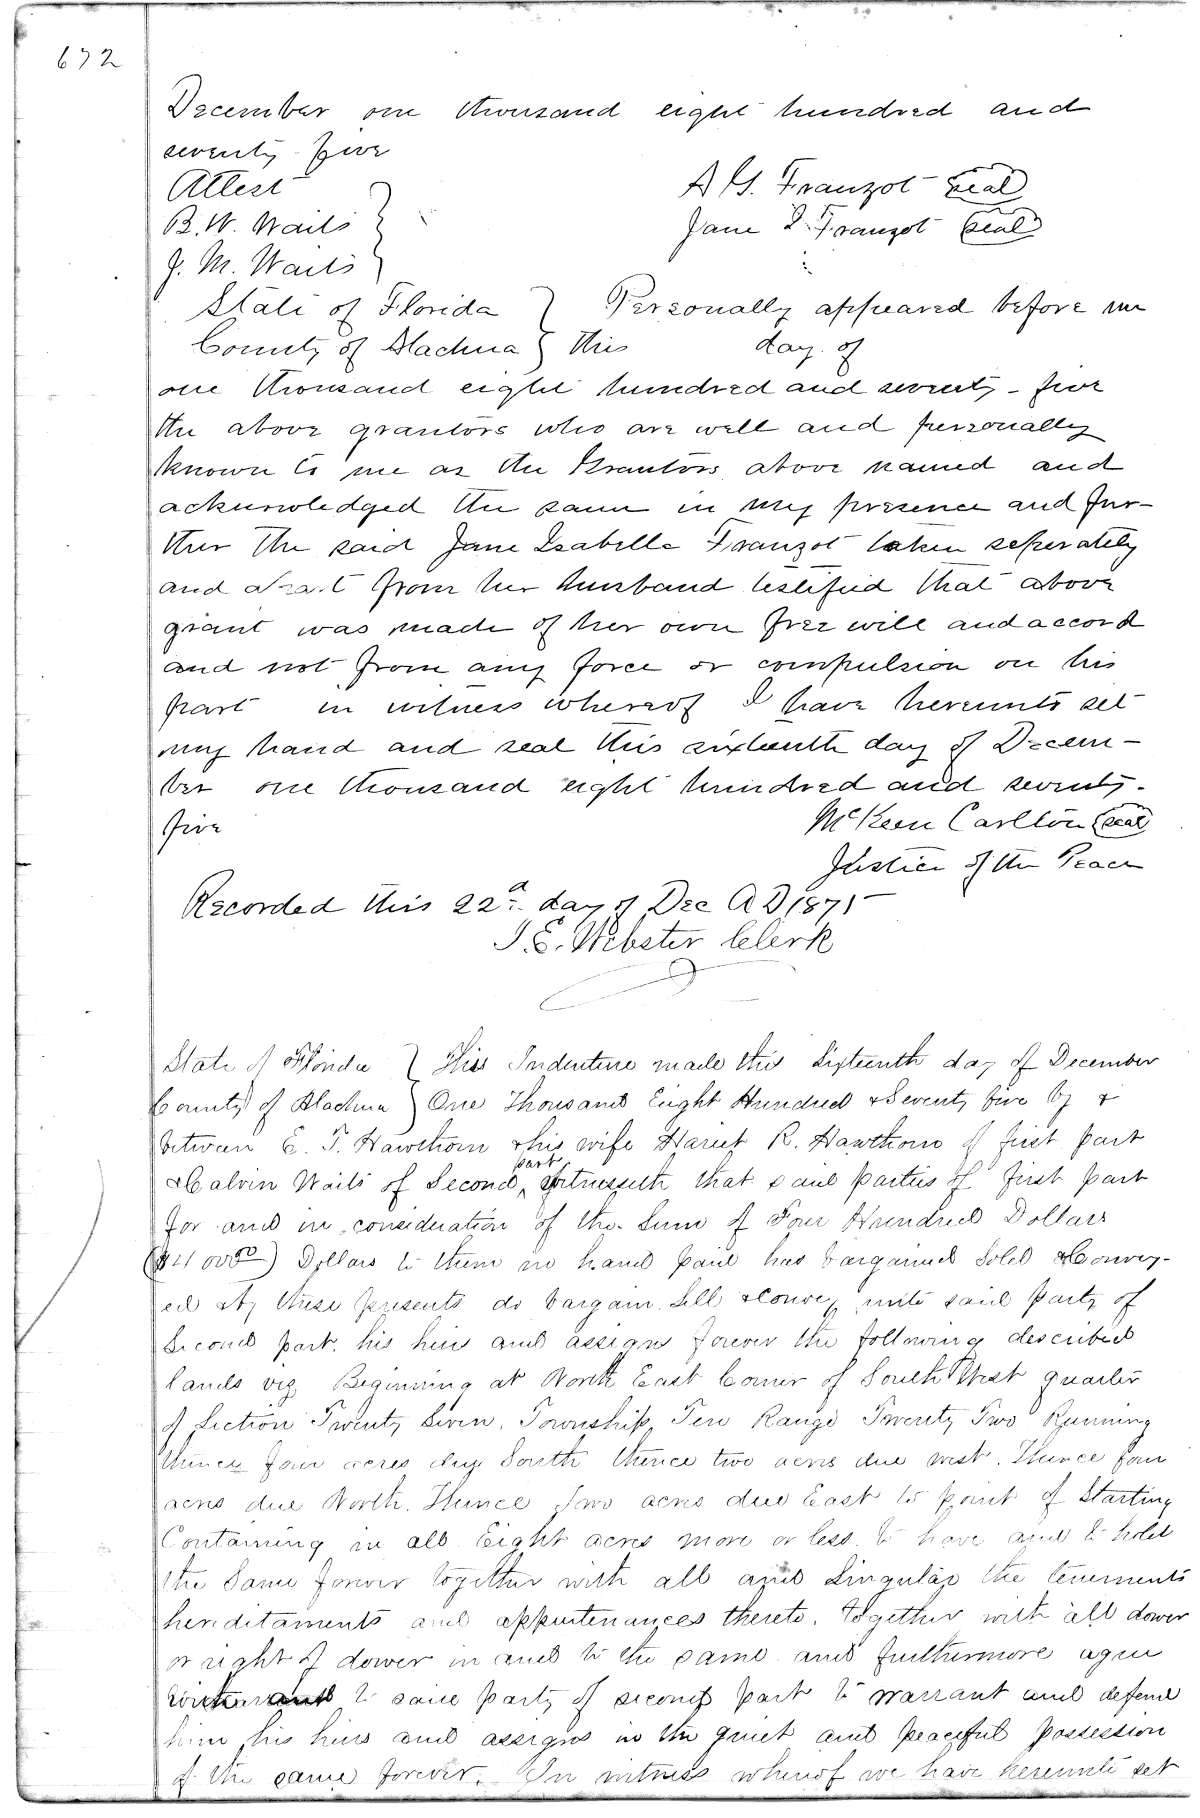 672
December one thousand eight hundred and
seventy five
Attest
B. W. Waits
J. M. Waits
A G. Franzot Seal
Jane I. Franzot Seal
State of Florida } Personally appeared before me
County of Alachua } this day of
one thousand eight hundred and seventy-five
the above grantors who are well and personally
known to me as the Grantors above named and
acknowledged the same in my presence and fur-
ther the said Jane Isabella Franzot taken seperately
and apart from her husband testified that above
grant was made of her own free will and accord
and not from any force or compulsion on his
part in witness whereof I have hereunto set
my hand and seal this sixteenth day of Decem-
ber one thousand eight hundred and seventy-
five
McKeen Carlton Seal
Justice of the Peace
Recorded this 22d day of Dec AD 1875
J. E. Webster Clerk
State of Florida } This Indenture made this Sixteenth day of December
County of Alachua } One Thousand Eight Hundred & Seventy five by &
between E. T. Hawthorn & his wife Hariet R. Hawthorn of first part
& Calvin Waits of Second part Witnesseth that said parties of first part
for and in consideration of the Sum of Four Hundred Dollars
($400 00) Dollars to them in hand paid has bargained Sold & Convey-
ed & by these presents do bargain Sell & convey unto said party of
Second part his heirs and assigns forever the following described
lands viz Beginning at North East Corner of South West quarter
of Section Twenty Seven, Township Ten Range Twenty Two Running
thence four acres due South thence two acres due west. Thence four
acres due North. Thence Two acres due East to point of Starting
Containing in all Eight acres more or less. to have and to hold
the Same forever together with all and Singular the tenements
hereditaments and appurtenances thereto. together with all dower
or right of dower in and to the same and furthermore agree
to said party of second part to warrant and defend
him his heirs and assigns in the quiet and peaceful possession
of the same forever. In witness whereof we have hereunto set